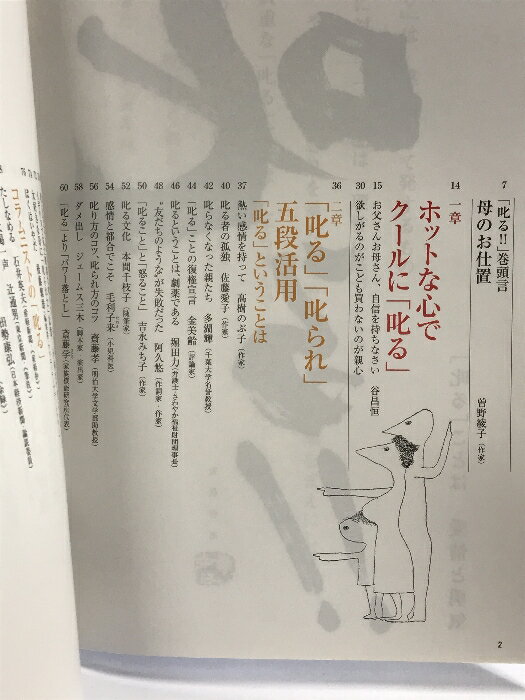 7
「叱る!!」巻頭言
母のお仕置
曽野綾子(作家)
14
一章
ホットな心で
クールに「叱る」
15
お父さんお母さん、自信を持ちなさい 谷昌恒
30
欲しがるのがこども買わないのが親心
36
二章
「叱る」「叱られ」
五段活用
「叱る」ということは
37
熱い感情を持って 高樹のぶ子(作家)
40
叱る者の孤独 佐藤愛子(作家)
42
叱らなくなった親たち 多湖輝(千葉大学名誉教授)
44
「叱る」ことの復権宣言 金美齢(評論家)
46
叱るということは、劇薬である 堀田力(弁護士・さわやか福祉財団理事長)
48
“友だちのような”が失敗だった 阿久悠(作詞家・作家)
50
「叱ること」と「怒ること」 吉永みち子(作家)
52
叱る文化 本間千枝子(随筆家)
54
感情と都合でこそ 毛利子来(小児科医)
56
叱り方のコツ、叱られ方のコツ 齋藤孝(明治大学文学部助教授)
58
ダメ出し ジェームス三木(脚本家・演出家)
60
「叱る」より「パワー落とし」 斎藤学(家族機能研究所代表)
コラムニストの「叱る」
たしなめる 石井英夫
声 辻通男
2